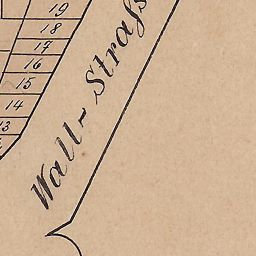 19
18
17
16
15
14
13
Wall-Straß